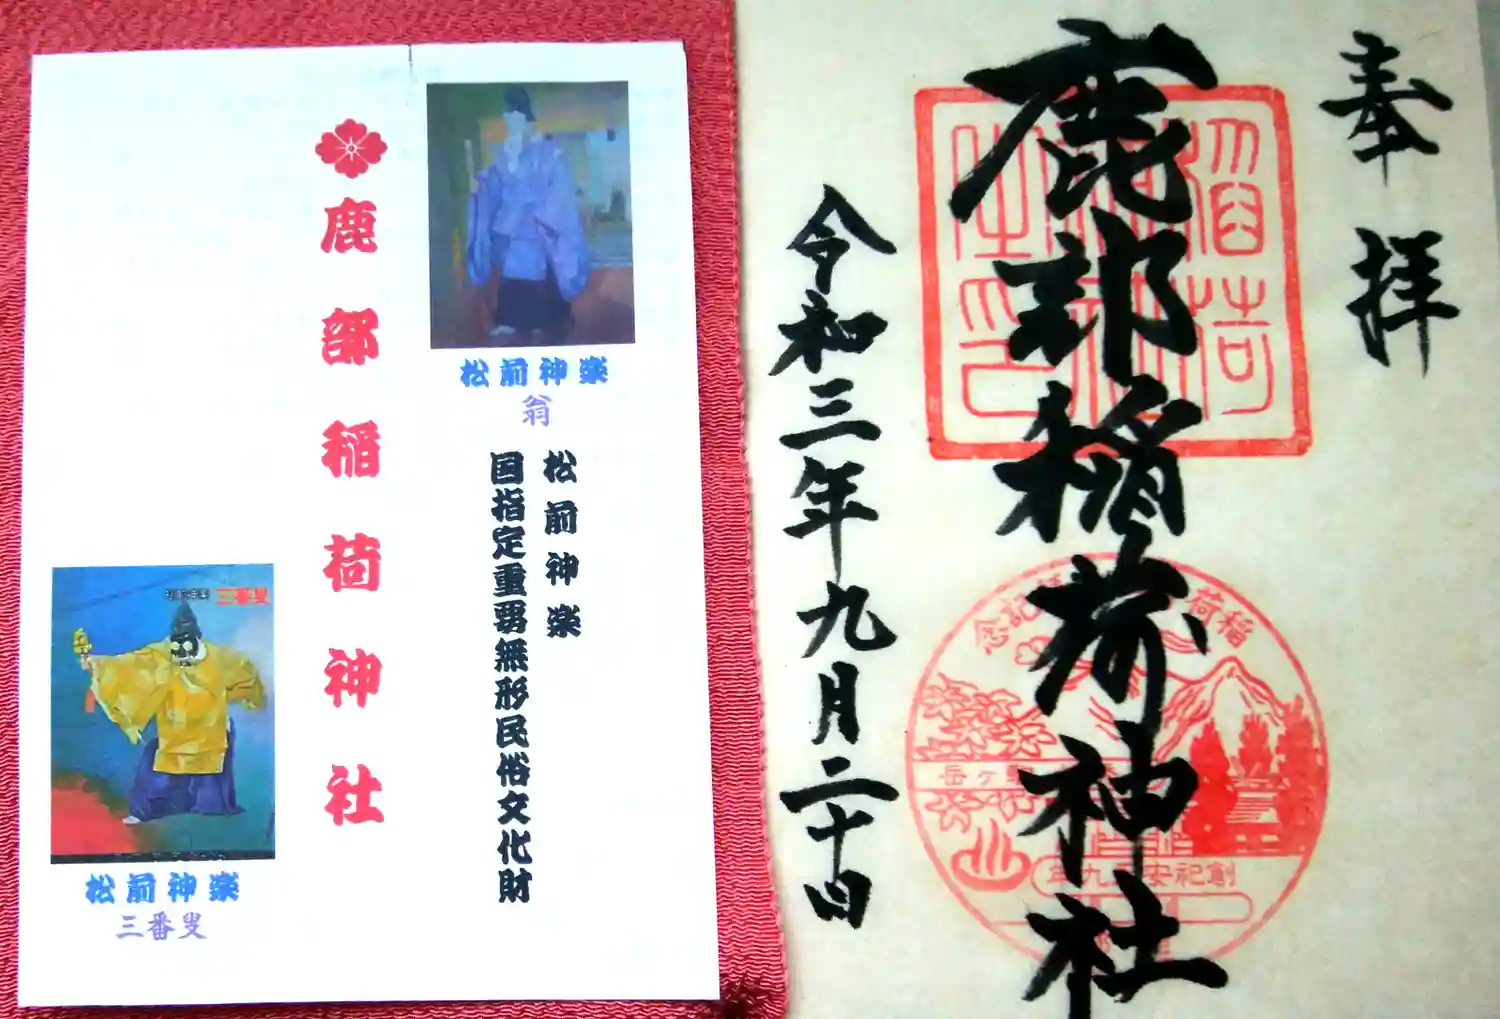 奉拝
鹿部稲荷神社
令和三年九月二十四日
稲荷
記念
岳ヶ駒
創祀安
九年
松前神楽
翁
松前神楽
国指定重要無形民俗文化財
鹿部稲荷神社
三番叟
松前神楽
三番叟